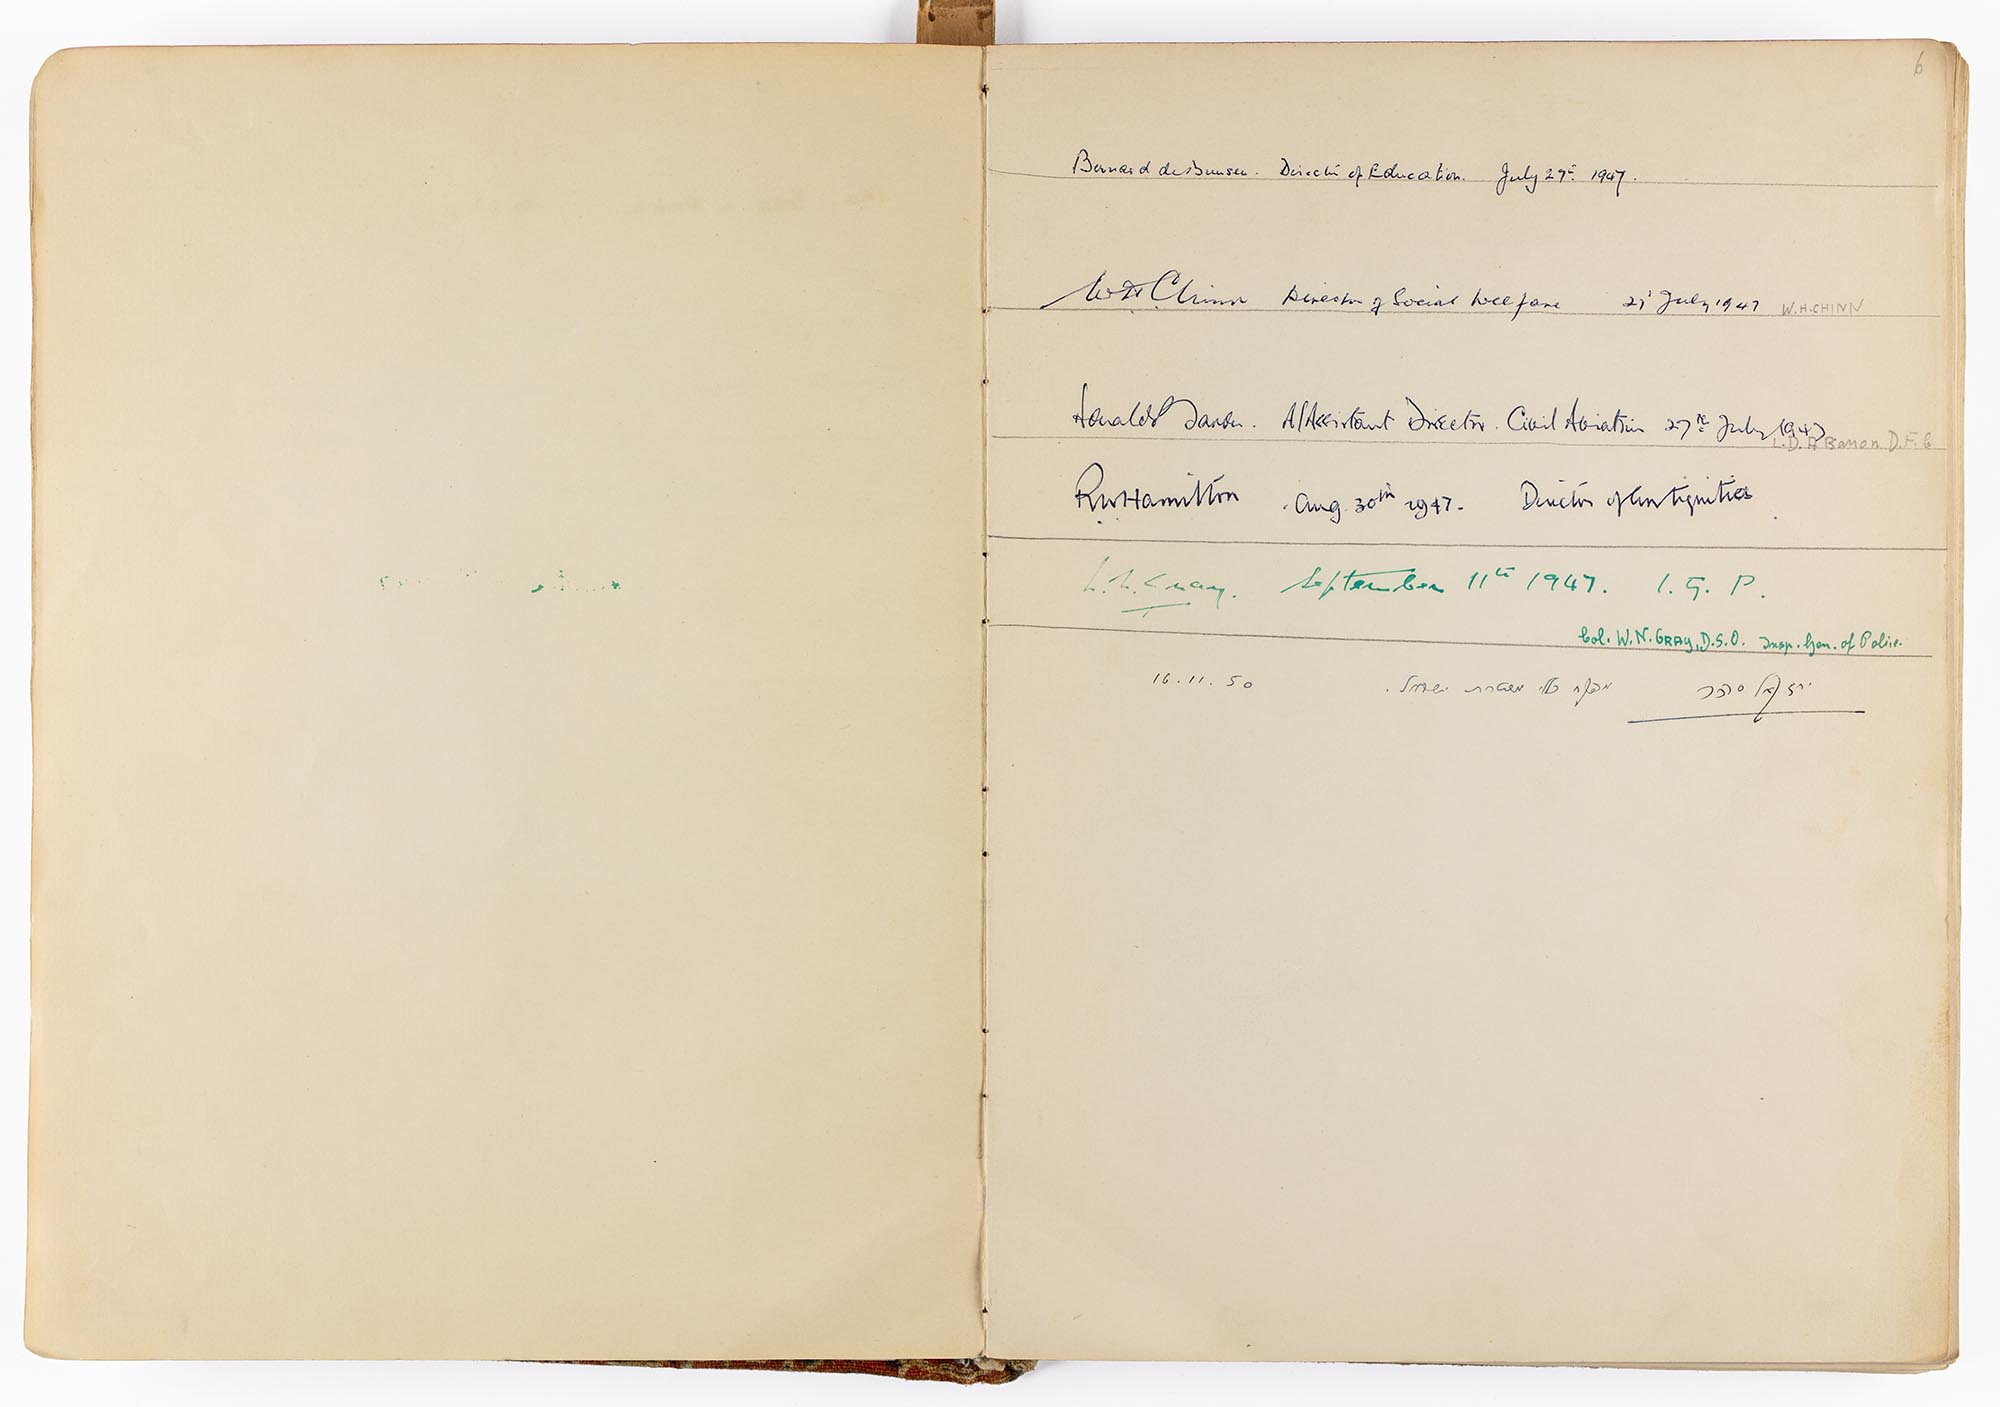 6
Bernard de Bunsen. Director of Education. July 29th 1947.
W H Chinn Director of Social Welfare 29 July 1947 W.H.CHINN
A/Assistant Director. Civil Aviation 27th July 1947
D.F.C
RW Hamilton Aug 30th 1947. Director of Antiquities
W.N. Gray. September 11th 1947. I. G. P.
Col. W.N. GRAY, D.S.O. Insp. Gen. of Police.
יחזקאל סהר מפקח כללי משטרת ישראל. 16.11.50